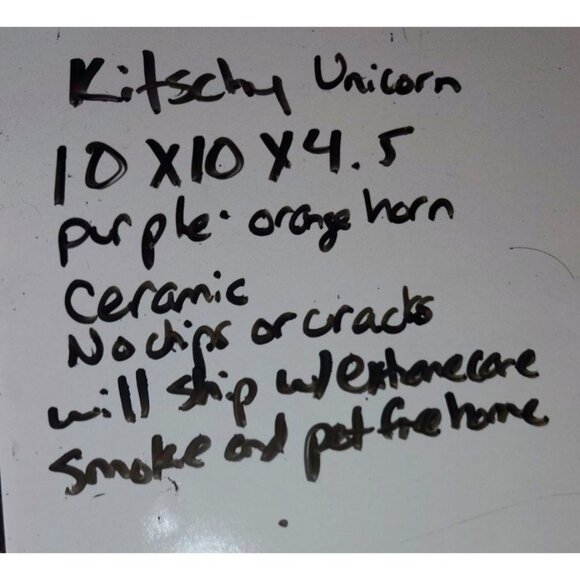 Kitschy Unicorn
10 X 10 X 4.5
purple - orange horn
Ceramic
No chips or cracks
will ship w/ extreme care
Smoke and pet free home